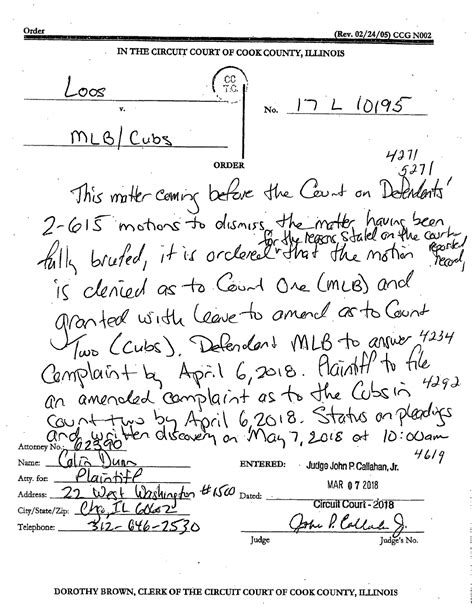 Order
(Rev. 02/24/05) CCG N002
IN THE CIRCUIT COURT OF COOK COUNTY, ILLINOIS
CC
T.C.
Loos
v.
No. 17 L 10195
MLB/Cubs
ORDER
4271
5271
This matter coming before the Court on Defendants'
2-615 motions to dismiss, the matter having been
for the reasons stated on the court reported record,
fully briefed, it is ordered that the motion
is denied as to Count One (MLB) and
granted with leave to amend as to Count
Two (Cubs). Defendant MLB to answer 4234
Complaint by April 6, 2018. Plaintiff to file
an amended complaint as to the Cubs in 4292
Count two by April 6, 2018. Status on pleadings
and written discovery on May 7, 2018 at 10:00am
4619
Attorney No.: 62390
Name: Colin Dunn
ENTERED: Judge John P. Callahan, Jr.
Atty. for: Plaintiff
MAR 07 2018
Address: 22 West Washington #1500
Dated:
Circuit Court - 2018
City/State/Zip: Chgo, IL 60602
John P. Callahan Jr.
Telephone: 312-646-2530
Judge
Judge's No.
DOROTHY BROWN, CLERK OF THE CIRCUIT COURT OF COOK COUNTY, ILLINOIS